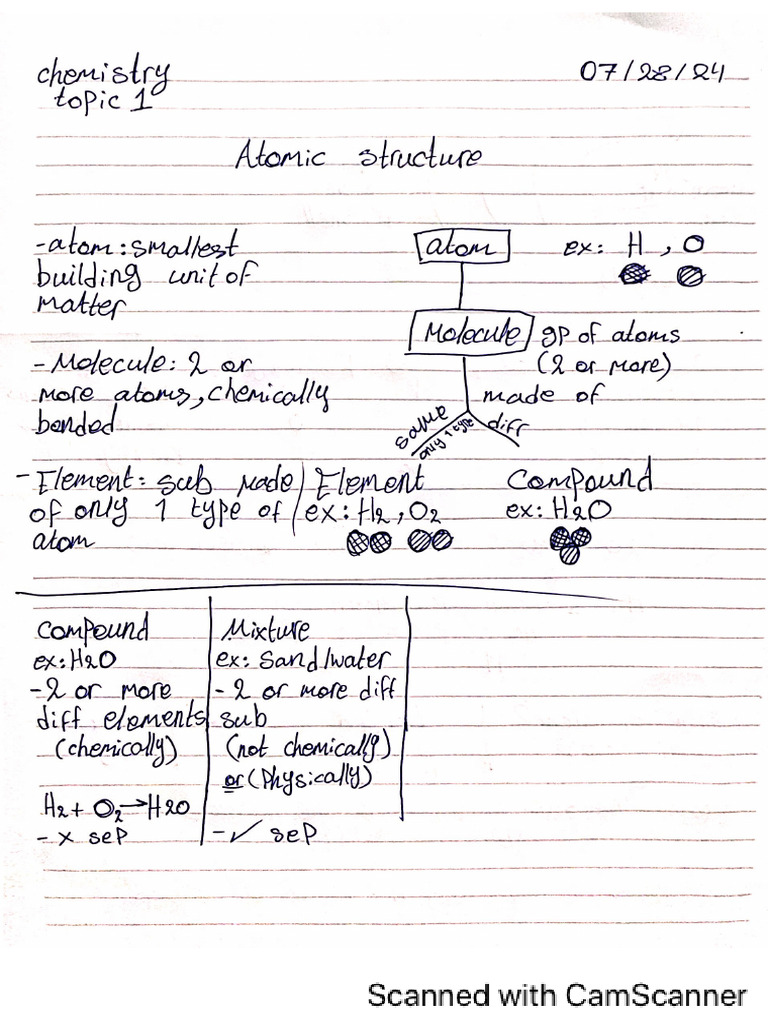 chemistry
topic 1
07/28/24
Atomic structure
-atom: smallest
building unit of
matter
- Molecule: 2 or
more atoms, chemically
bonded
- Element: sub made
of only 1 type of
atom
atom
ex: H , O
Molecule gp of atoms
(2 or more)
made of
same
only 1 type
diff
Element
ex: H2, O2
Compound
ex: H2O
Compound
ex: H2O
- 2 or more
diff elements
(chemically)
H2 + O2 → H2O
- x sep
Mixture
ex: Sand/water
- 2 or more diff
sub
(not chemically)
or (Physically)
- ✓ sep
Scanned with CamScanner